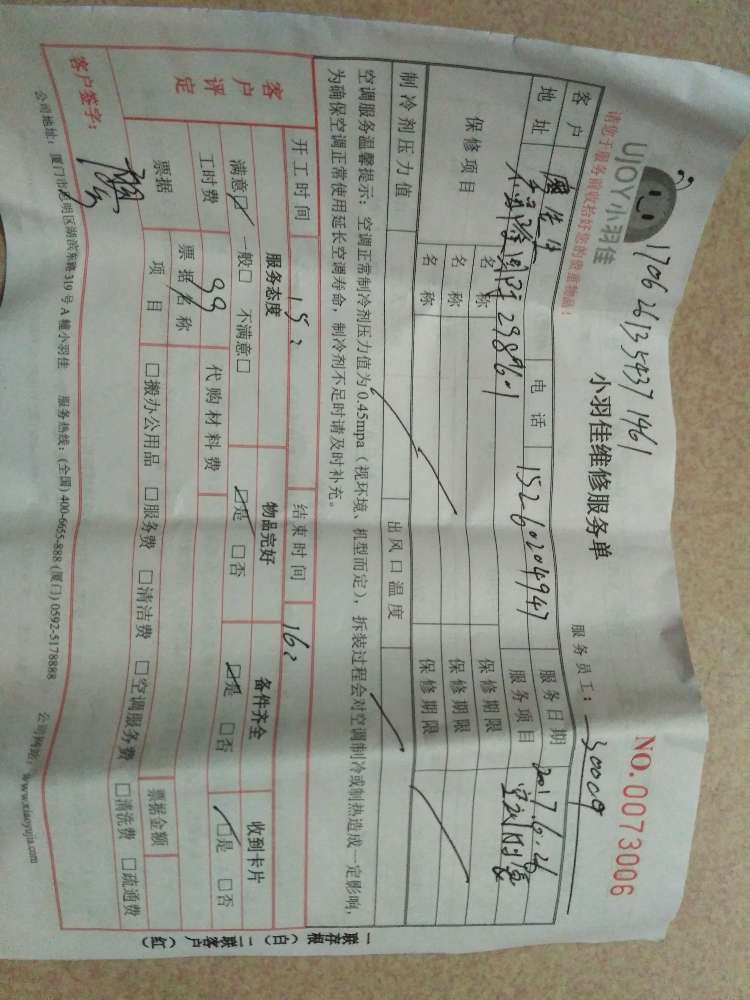 1706261354371961
UJOY小羽佳
请您于服务前收拾好您的贵重物品！
小羽佳维修服务单
NO.0073006
服务员工：30009
客户 电话 15260204947 服务日期 2017.6.26
地址 298#601 服务项目
保修项目 名称 保修期限
名称 保修期限
名称 保修期限
制冷剂压力值 出风口温度
空调服务温馨提示：空调正常制冷剂压力值为0.45mpa（视环境、机型而定），拆装过程会对空调制冷或制热造成一定影响，
为确保空调正常使用延长空调寿命，制冷剂不足时请及时补充。
开工时间 15: 结束时间 16:
客户评定 服务态度 物品完好 备件齐全 收到卡片
满意☑ 一般□ 不满意□ ☑是 □否 ☑是 □否 ☑是 □否
工时费 99 代购材料费
票据 票据名称 票据金额
项目 □搬办公用品 □服务费 □清洁费 □空调服务费 □清洗费 □疏通费
客户签字：
公司地址：厦门市思明区湖滨东路319号A幢小羽佳 服务热线：(全国)400-6655-888(厦门)0592-5178888 公司网站：www.xiaoyujia.com
一联存根（白） 二联客户（红）